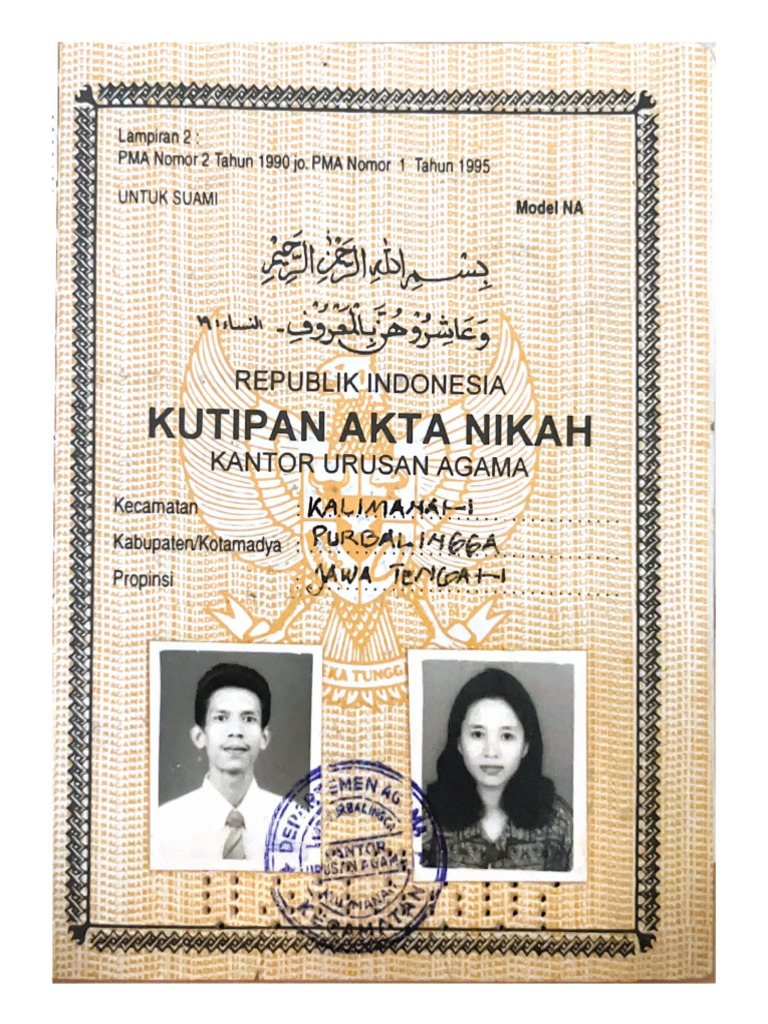 Lampiran 2 :
PMA Nomor 2 Tahun 1990 jo. PMA Nomor 1 Tahun 1995
UNTUK SUAMI
Model NA
بِسْمِ اللهِ الرَّحْمٰنِ الرَّحِيْمِ
وَعَاشِرُوْهُنَّ بِالْمَعْرُوْفِ - النساء ١٩
REPUBLIK INDONESIA
KUTIPAN AKTA NIKAH
KANTOR URUSAN AGAMA
Kecamatan : KALIMANAH
Kabupaten/Kotamadya : PURBALINGGA
Propinsi : JAWA TENGAH
EKA TUNGG
DEPARTEMEN AGAMA
PURBALINGGA
KANTOR
URUSAN AGAMA
KALIMANAH
KECAMATAN